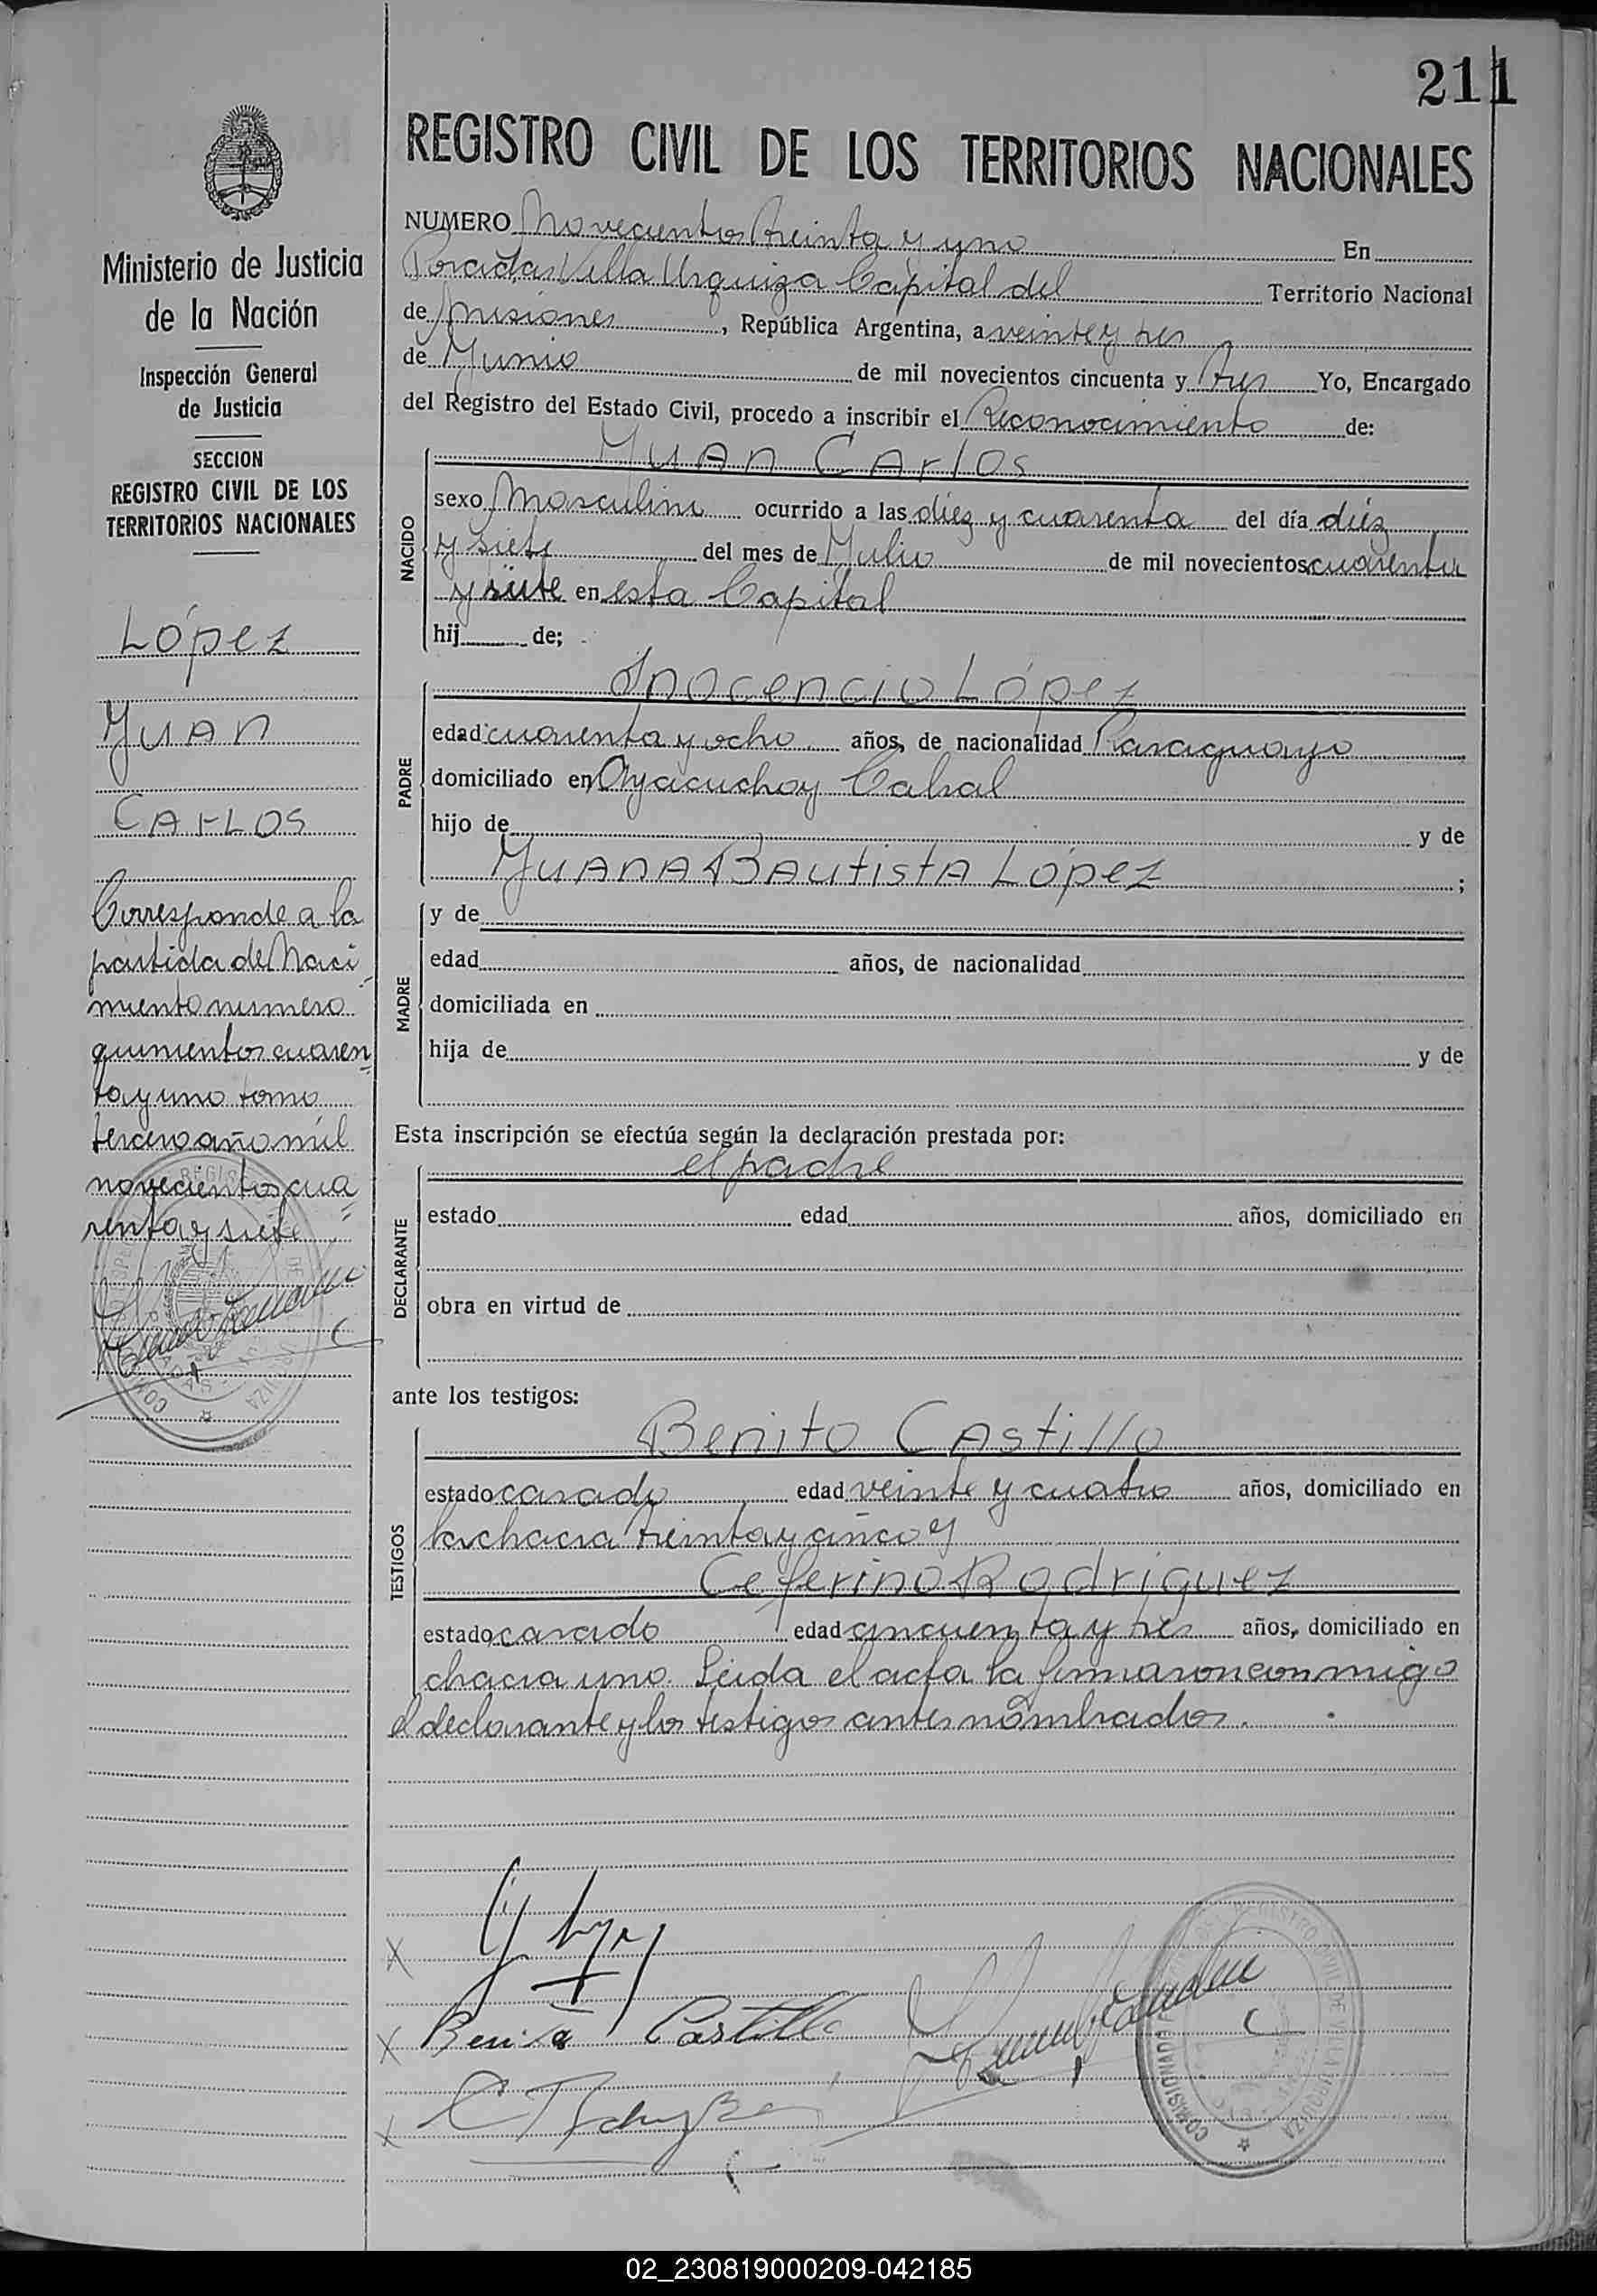 211
REGISTRO CIVIL DE LOS TERRITORIOS NACIONALES
Ministerio de Justicia
de la Nación
Inspección General
de Justicia
SECCION
REGISTRO CIVIL DE LOS
TERRITORIOS NACIONALES
López
Juan
Carlos
Corresponde a la
partida de Naci
miento numero
quinientos cuaren
ta y uno tomo
tercero año mil
novecientos cua
renta y siete
NUMERO Novecientos treinta y uno En
Posadas Villa Urquiza Capital del Territorio Nacional
de Misiones, República Argentina, a veinte y tres
de Junio de mil novecientos cincuenta y tres Yo, Encargado
del Registro del Estado Civil, procedo a inscribir el Reconocimiento de:
NACIDO
Juan Carlos
sexo Masculino ocurrido a las diez y cuarenta del día diez
y siete del mes de Julio de mil novecientos cuarenta
y siete en esta Capital
hij de;
PADRE
Inocencio López
edad cuarenta y ocho años, de nacionalidad Paraguayo
domiciliado en Ayacucho y Cabral
hijo de y de
Juana Bautista López ;
MADRE
y de
edad años, de nacionalidad
domiciliada en
hija de y de
Esta inscripción se efectúa según la declaración prestada por:
DECLARANTE
el padre
estado edad años, domiciliado en
obra en virtud de
ante los testigos:
TESTIGOS
Benito Castillo
estado casado edad veinte y cuatro años, domiciliado en
la chacra treinta y cinco y
Ceferino Rodríguez
estado casado edad cincuenta y tres años, domiciliado en
chacra uno. Leida el acta la firmaron conmigo
el declarante y los testigos antes nombrados.
X
X Benito Castillo
X
02_230819000209-042185